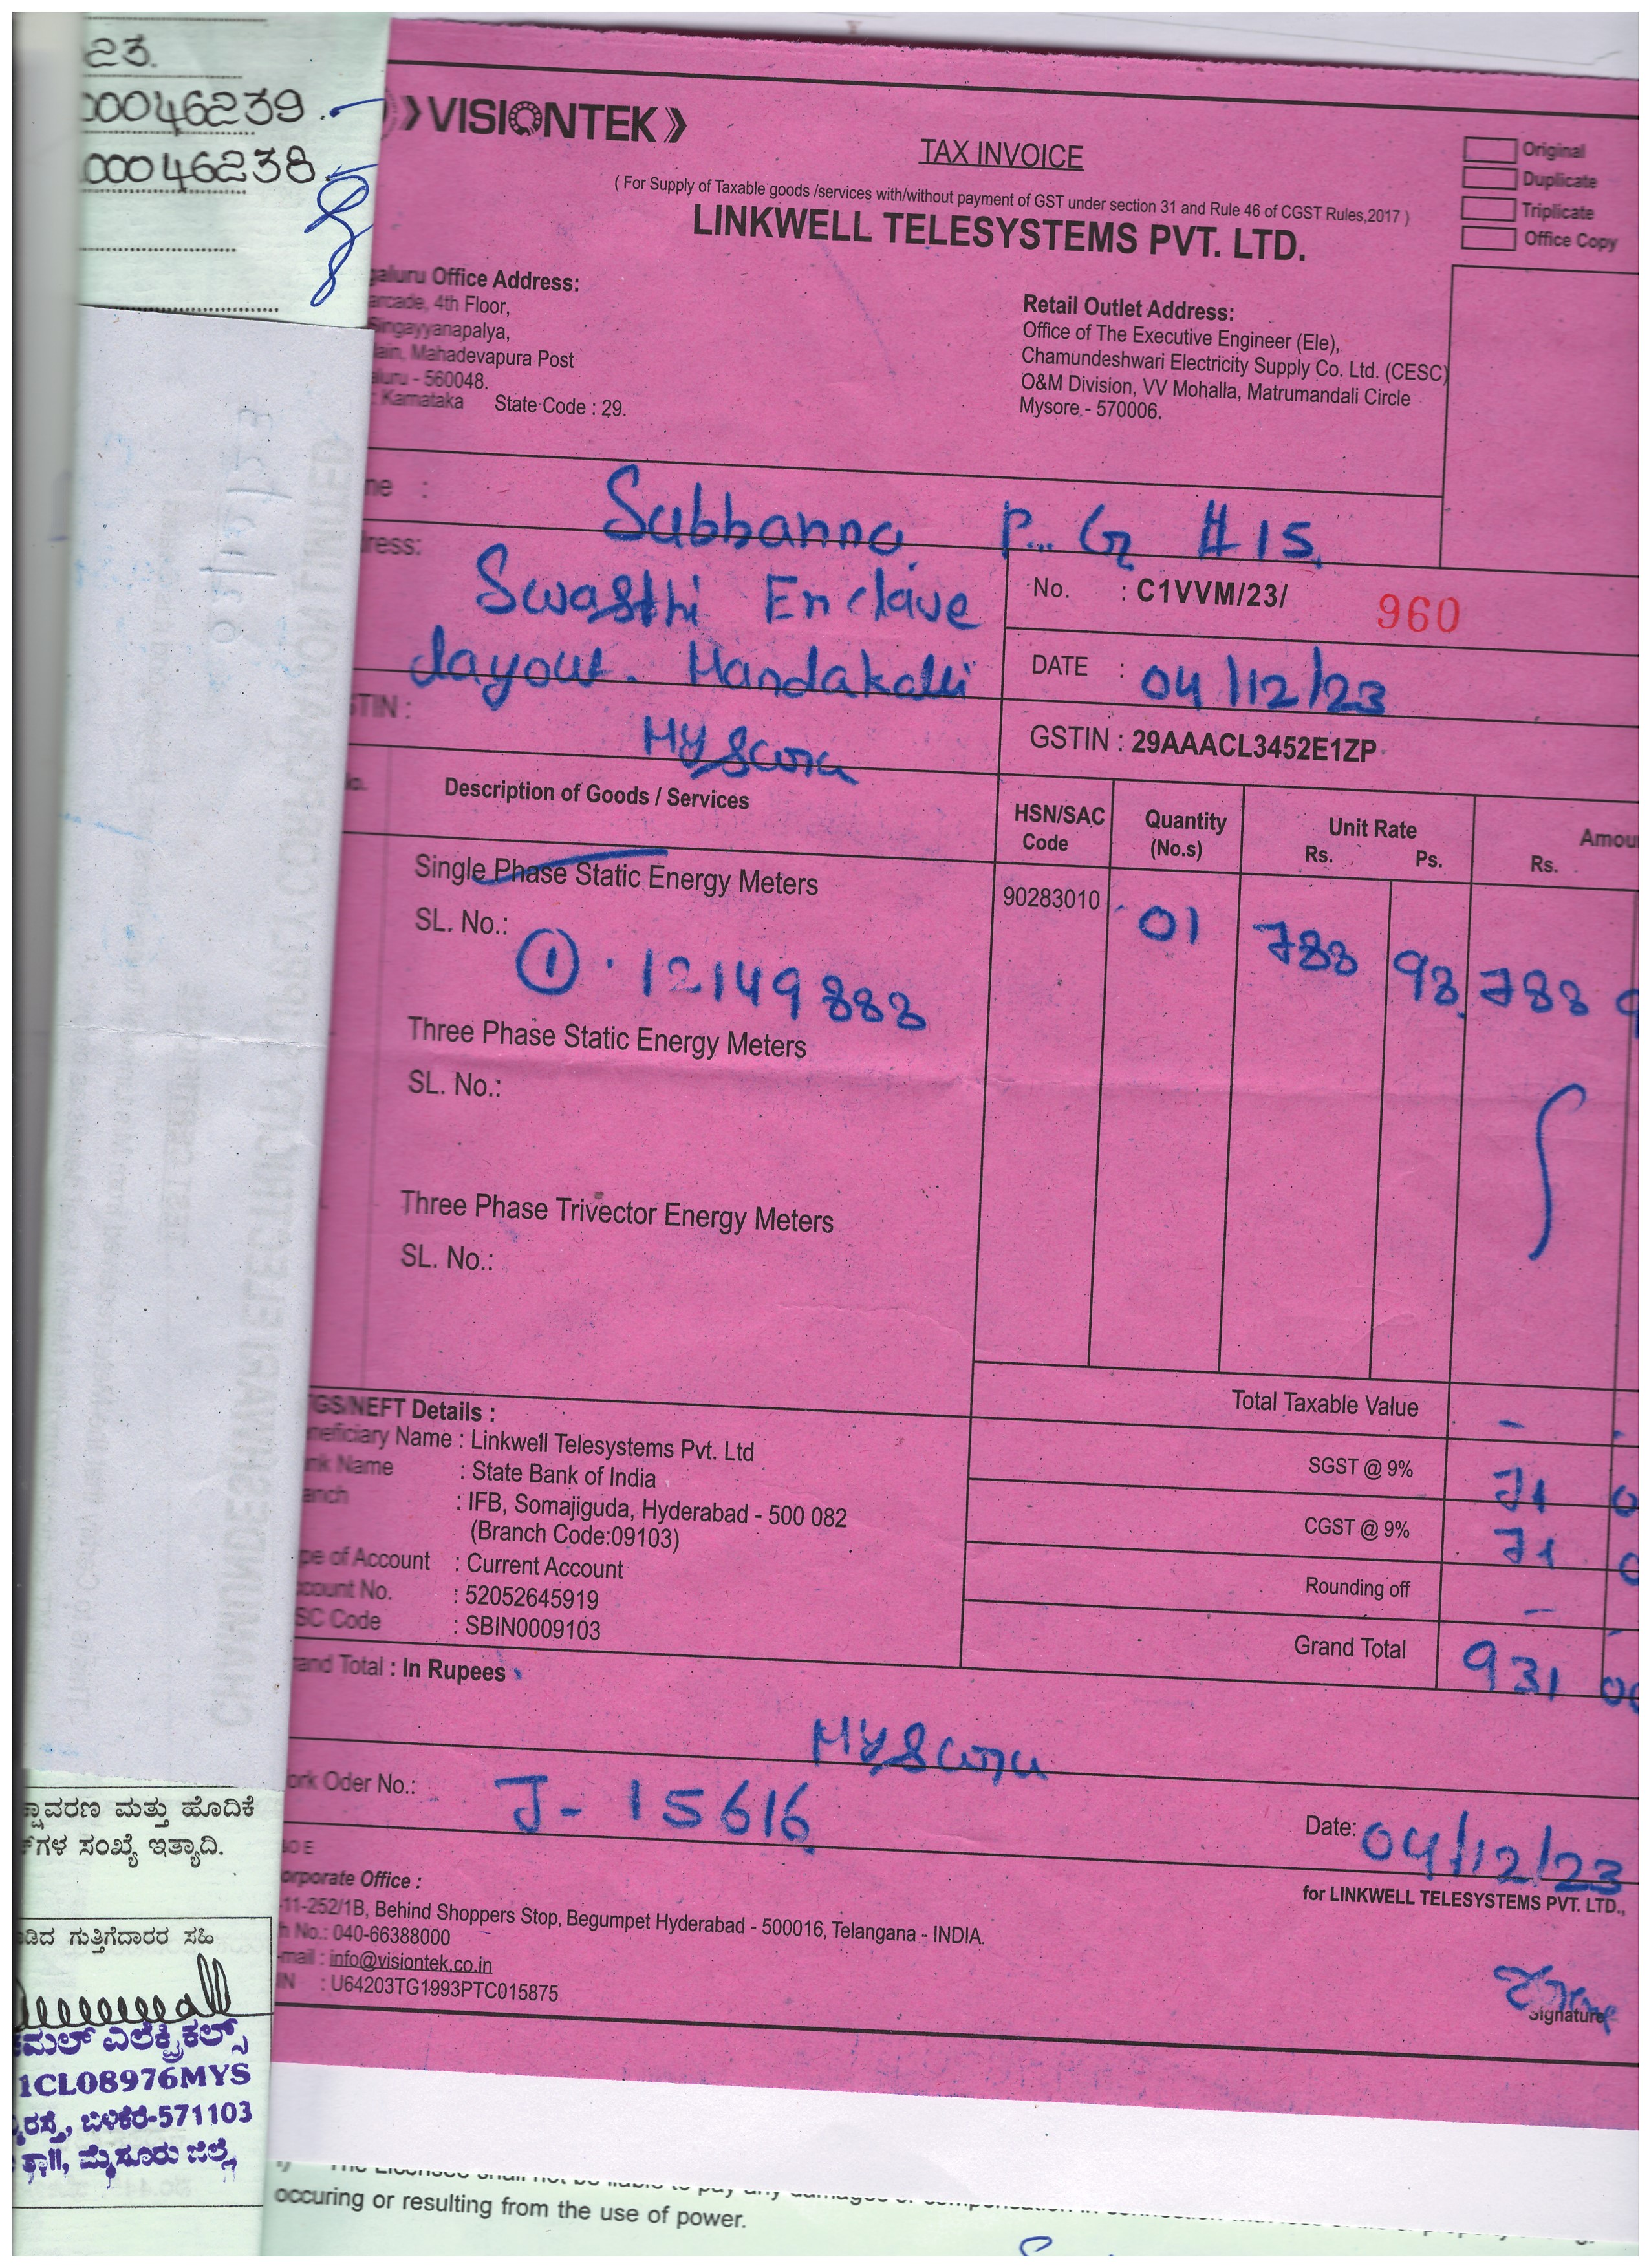 23.
00046239.
00046238.
VISIONTEK
TAX INVOICE
Original
Duplicate
Triplicate
Office Copy
( For Supply of Taxable goods /services with/without payment of GST under section 31 and Rule 46 of CGST Rules,2017 )
LINKWELL TELESYSTEMS PVT. LTD.
galuru Office Address:
arcade, 4th Floor,
Singayyanapalya,
ain, Mahadevapura Post
aluru - 560048.
: Karnataka State Code : 29.
Retail Outlet Address:
Office of The Executive Engineer (Ele),
Chamundeshwari Electricity Supply Co. Ltd. (CESC)
O&M Division, VV Mohalla, Matrumandali Circle
Mysore - 570006.
ne : Subbanna P.. G #15,
ress: Swasthi Enclave
layout. Handakalli
Mysuru
No. : C1VVM/23/ 960
DATE : 04/12/23
TIN :
GSTIN : 29AAACL3452E1ZP
o. Description of Goods / Services HSN/SAC Code Quantity (No.s) Unit Rate Rs. Ps. Amou Rs.
Single Phase Static Energy Meters 90283010 01 788 98 788 9
SL. No.:
① . 12149888
Three Phase Static Energy Meters
SL. No.:
Three Phase Trivector Energy Meters
SL. No.:
Total Taxable Value -
SGST @ 9% 71 0
CGST @ 9% 71 0
Rounding off -
Grand Total 931 00
GS/NEFT Details :
neficiary Name : Linkwell Telesystems Pvt. Ltd
nk Name : State Bank of India
anch : IFB, Somajiguda, Hyderabad - 500 082
(Branch Code:09103)
pe of Account : Current Account
ccount No. : 52052645919
SC Code : SBIN0009103
and Total : In Rupees
Mysuru
ork Oder No.: J- 15616
Date: 04/12/23
O E
orporate Office :
for LINKWELL TELESYSTEMS PVT. LTD.,
-11-252/1B, Behind Shoppers Stop, Begumpet Hyderabad - 500016, Telangana - INDIA.
h No.: 040-66388000
-mail : info@visiontek.co.in
IN : U64203TG1993PTC015875
Signature
ಕ್ಷಾವರಣ ಮತ್ತು ಹೊದಿಕೆ
ಗಳ ಸಂಖ್ಯೆ ಇತ್ಯಾದಿ.
ಡಿದ ಗುತ್ತಿಗೆದಾರರ ಸಹಿ
ಮಲ್ ಎಲೆಕ್ಟ್ರಿಕಲ್ಸ್
1CL08976MYS
ರಸ್ತೆ, ಬಿಳಿಕೆರೆ-571103
ತಾ||, ಮೈಸೂರು ಜಿಲ್ಲೆ
occuring or resulting from the use of power.